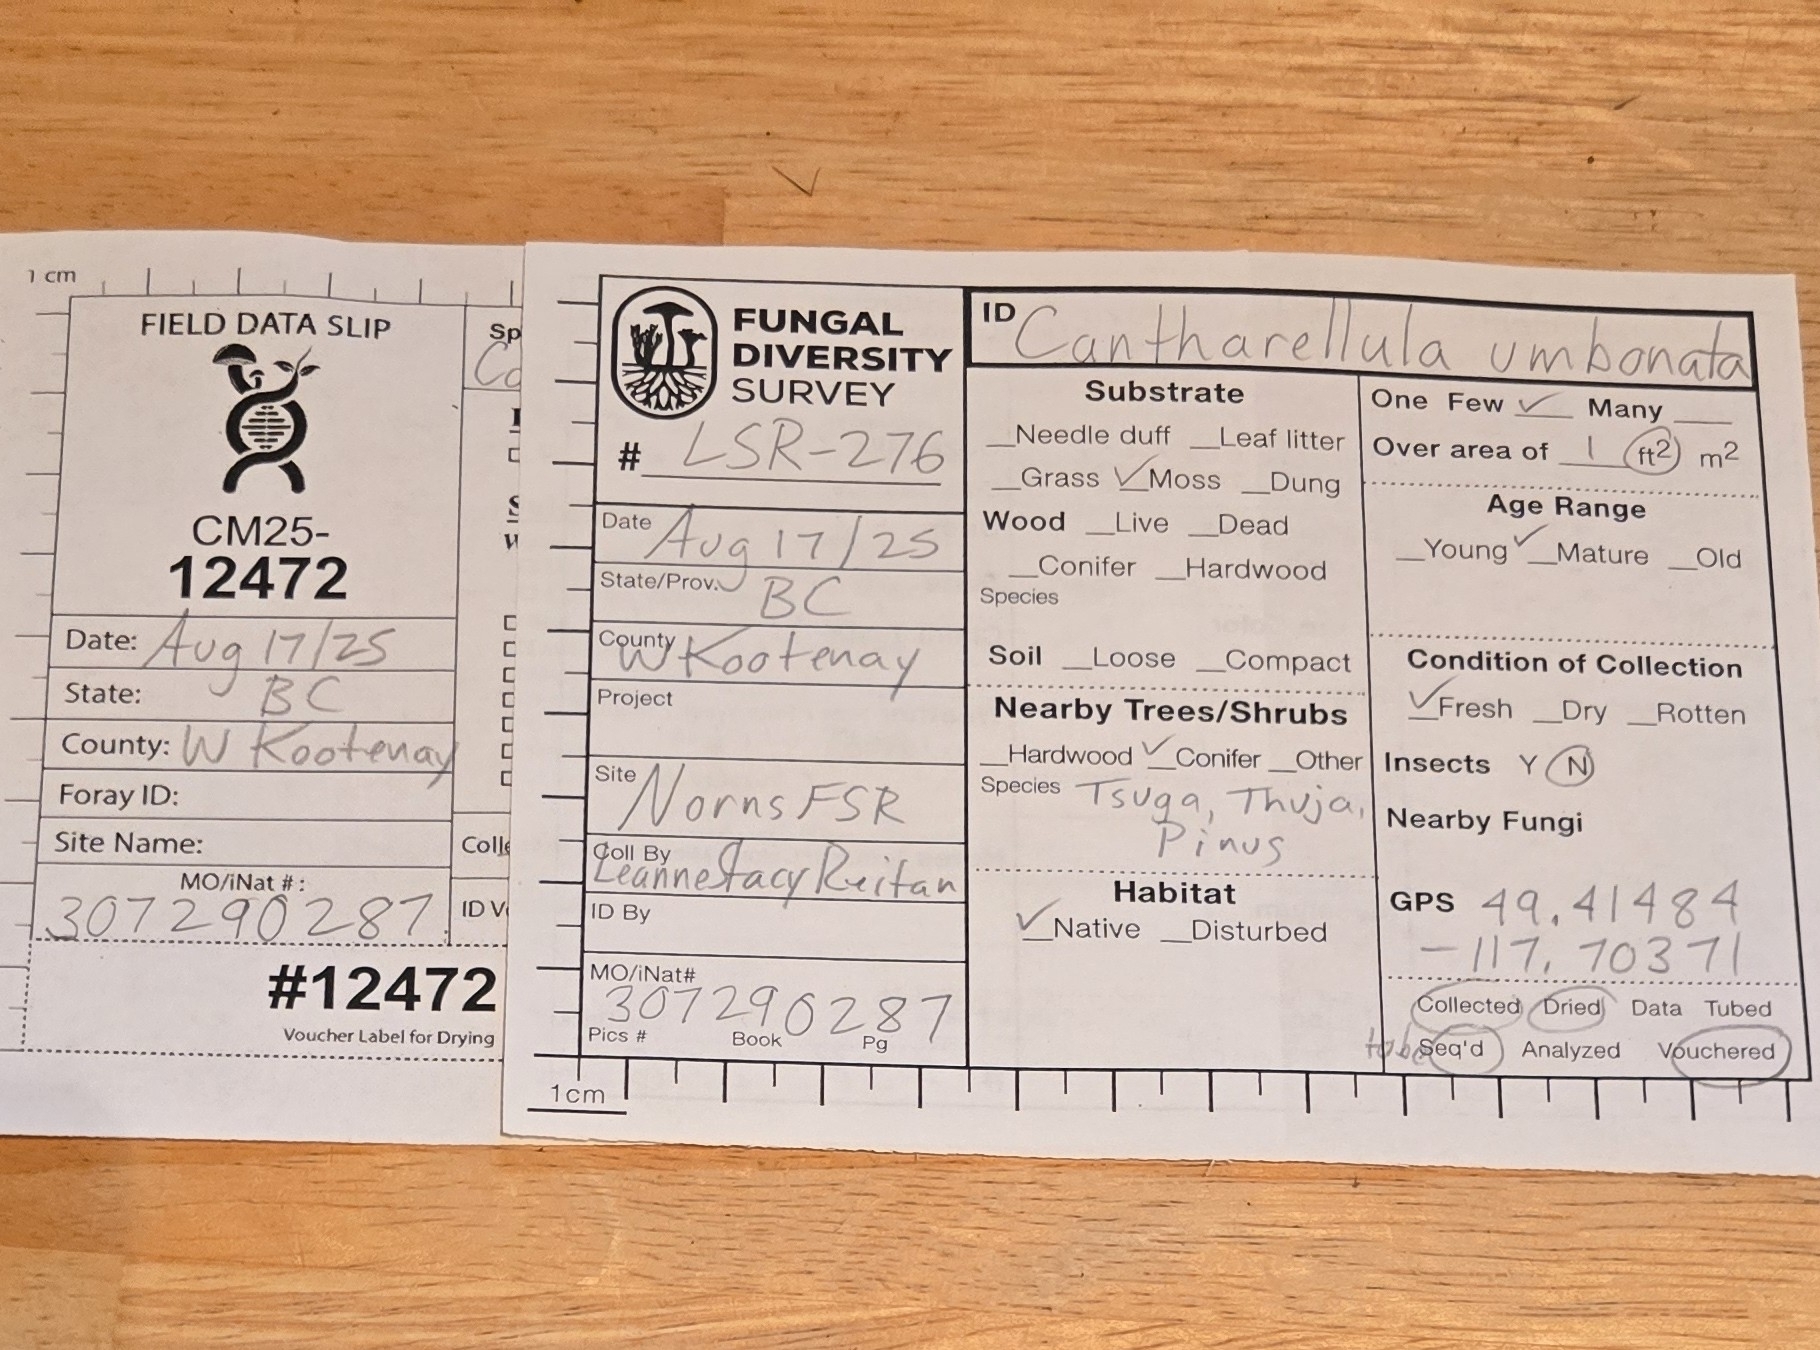 1 cm
FIELD DATA SLIP
CM25-
12472
Date: Aug 17/25
State: BC
County: W Kootenay
Foray ID:
Site Name:
MO/iNat #:
307290287
#12472
Voucher Label for Drying
Sp
Ca
Colle
ID V
FUNGAL
DIVERSITY
SURVEY
# LSR-276
Date Aug 17/25
State/Prov. BC
County W Kootenay
Project
Site Norns FSR
Coll By Leanne Stacy Reitan
ID By
MO/iNat# 307290287
Pics # Book Pg
1cm
ID Cantharellula umbonata
Substrate
__Needle duff __Leaf litter
__Grass ✓Moss __Dung
Wood __Live __Dead
__Conifer __Hardwood
Species
Soil __Loose __Compact
Nearby Trees/Shrubs
__Hardwood ✓Conifer __Other
Species Tsuga, Thuja,
Pinus
Habitat
✓Native __Disturbed
One Few ✓ Many ___
Over area of 1 ft2 m2
Age Range
__Young ✓Mature __Old
Condition of Collection
✓Fresh __Dry __Rotten
Insects Y N
Nearby Fungi
GPS 49.41484
-117.70371
Collected Dried Data Tubed
to be Seq'd Analyzed Vouchered